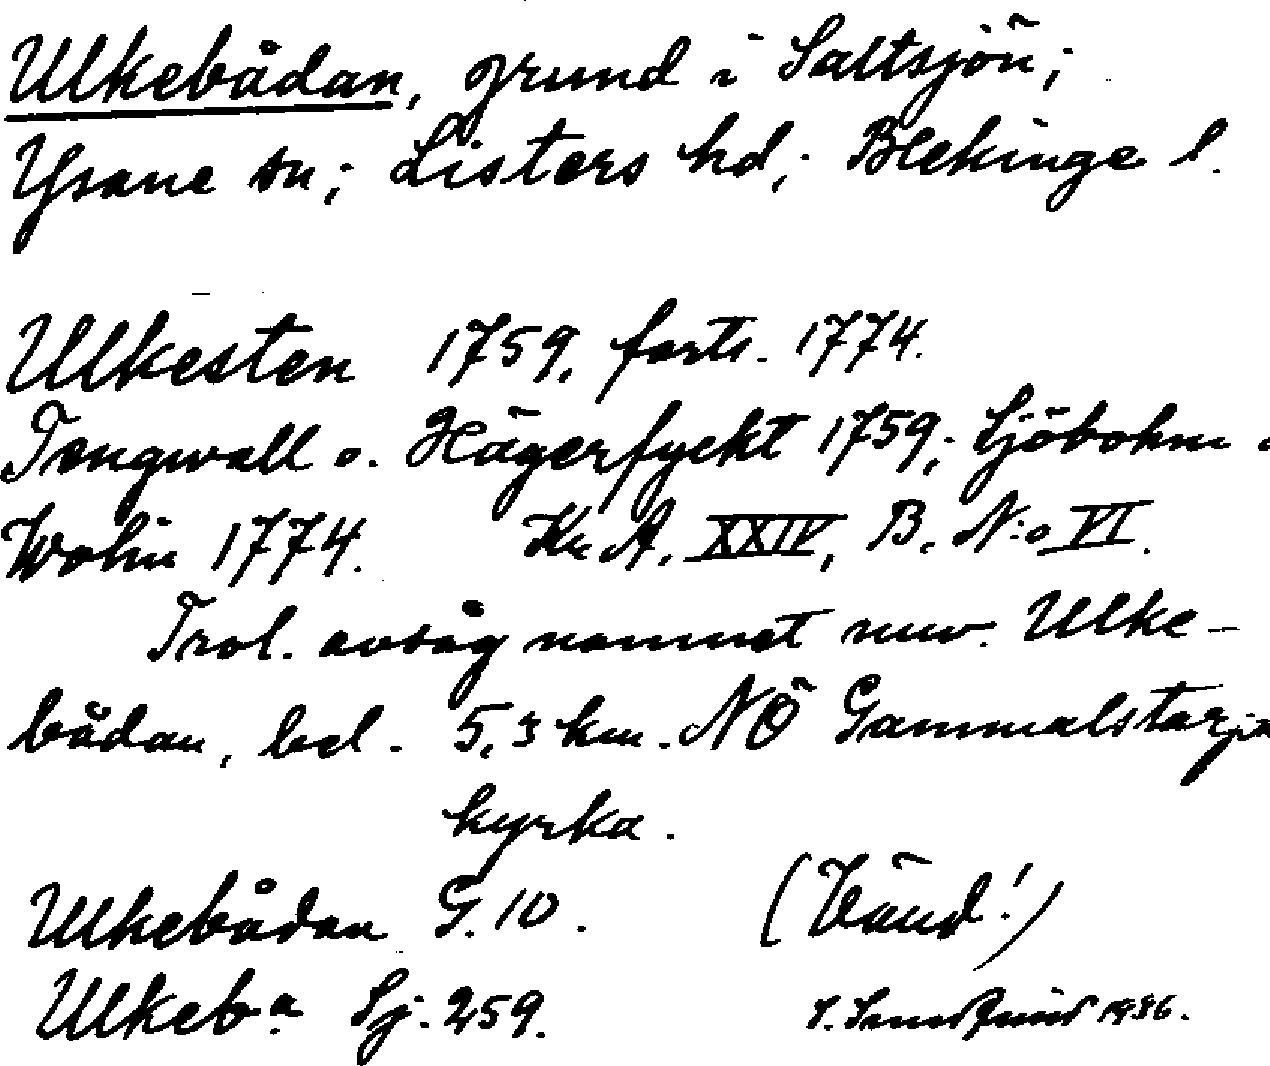 Ulkebådan, grund i Saltsjön;
Ysane sn; Listers hd; Blekinge l.
Ulkesten 1759, forts. 1774.
Tengwall o. Hägerflycht 1759; Sjöbohm o
Wolin 1774. Kr. A. XXIV, B. N:o VI.
Trol. avsåg namnet nuv. Ulke-
bådan, bel. 5,3 km. NÖ Gammalstorps
kyrka.
Ulkebådan G. 10. (Vänd!)
Ulkeb:n Sj. 259. 1936.